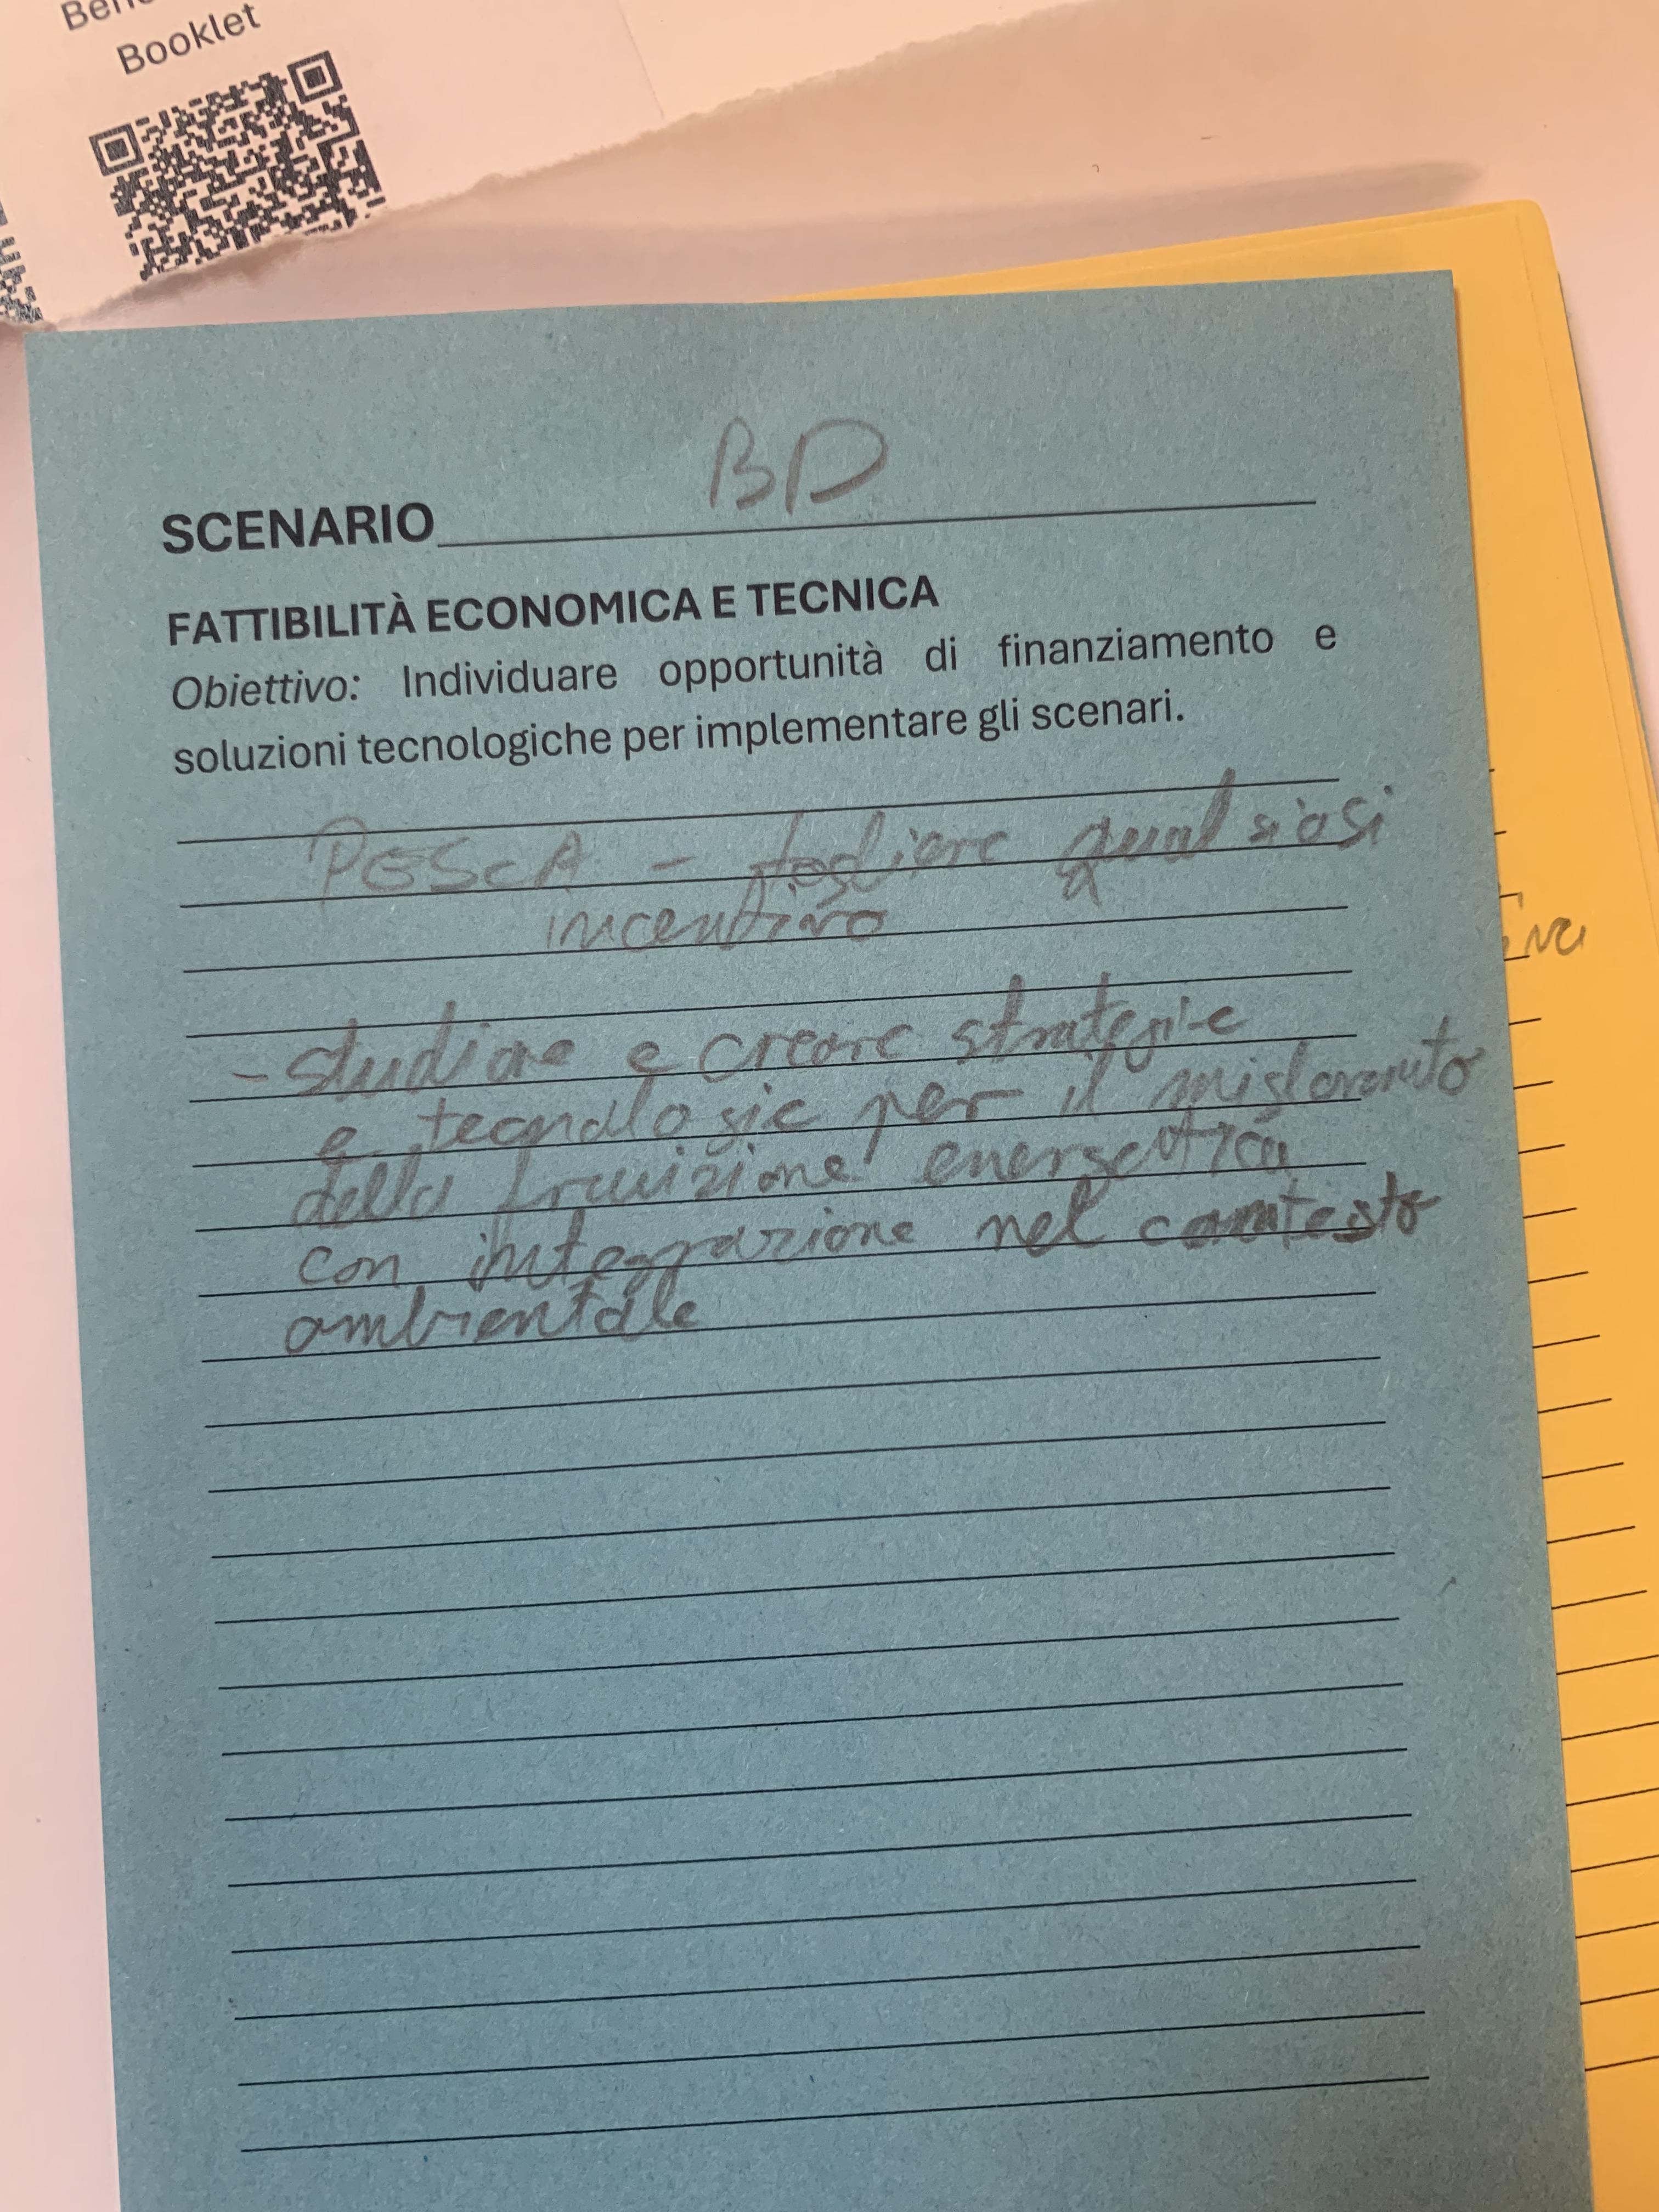 Booklet
SCENARIO BD
FATTIBILITÀ ECONOMICA E TECNICA
Obiettivo: Individuare opportunità di finanziamento e
soluzioni tecnologiche per implementare gli scenari.
PESCA - togliere qualsiasi
incentivo
- studiare e creare strategie
e tecnologie per il
della fruizione energetica
con integrazione nel contesto
ambientale